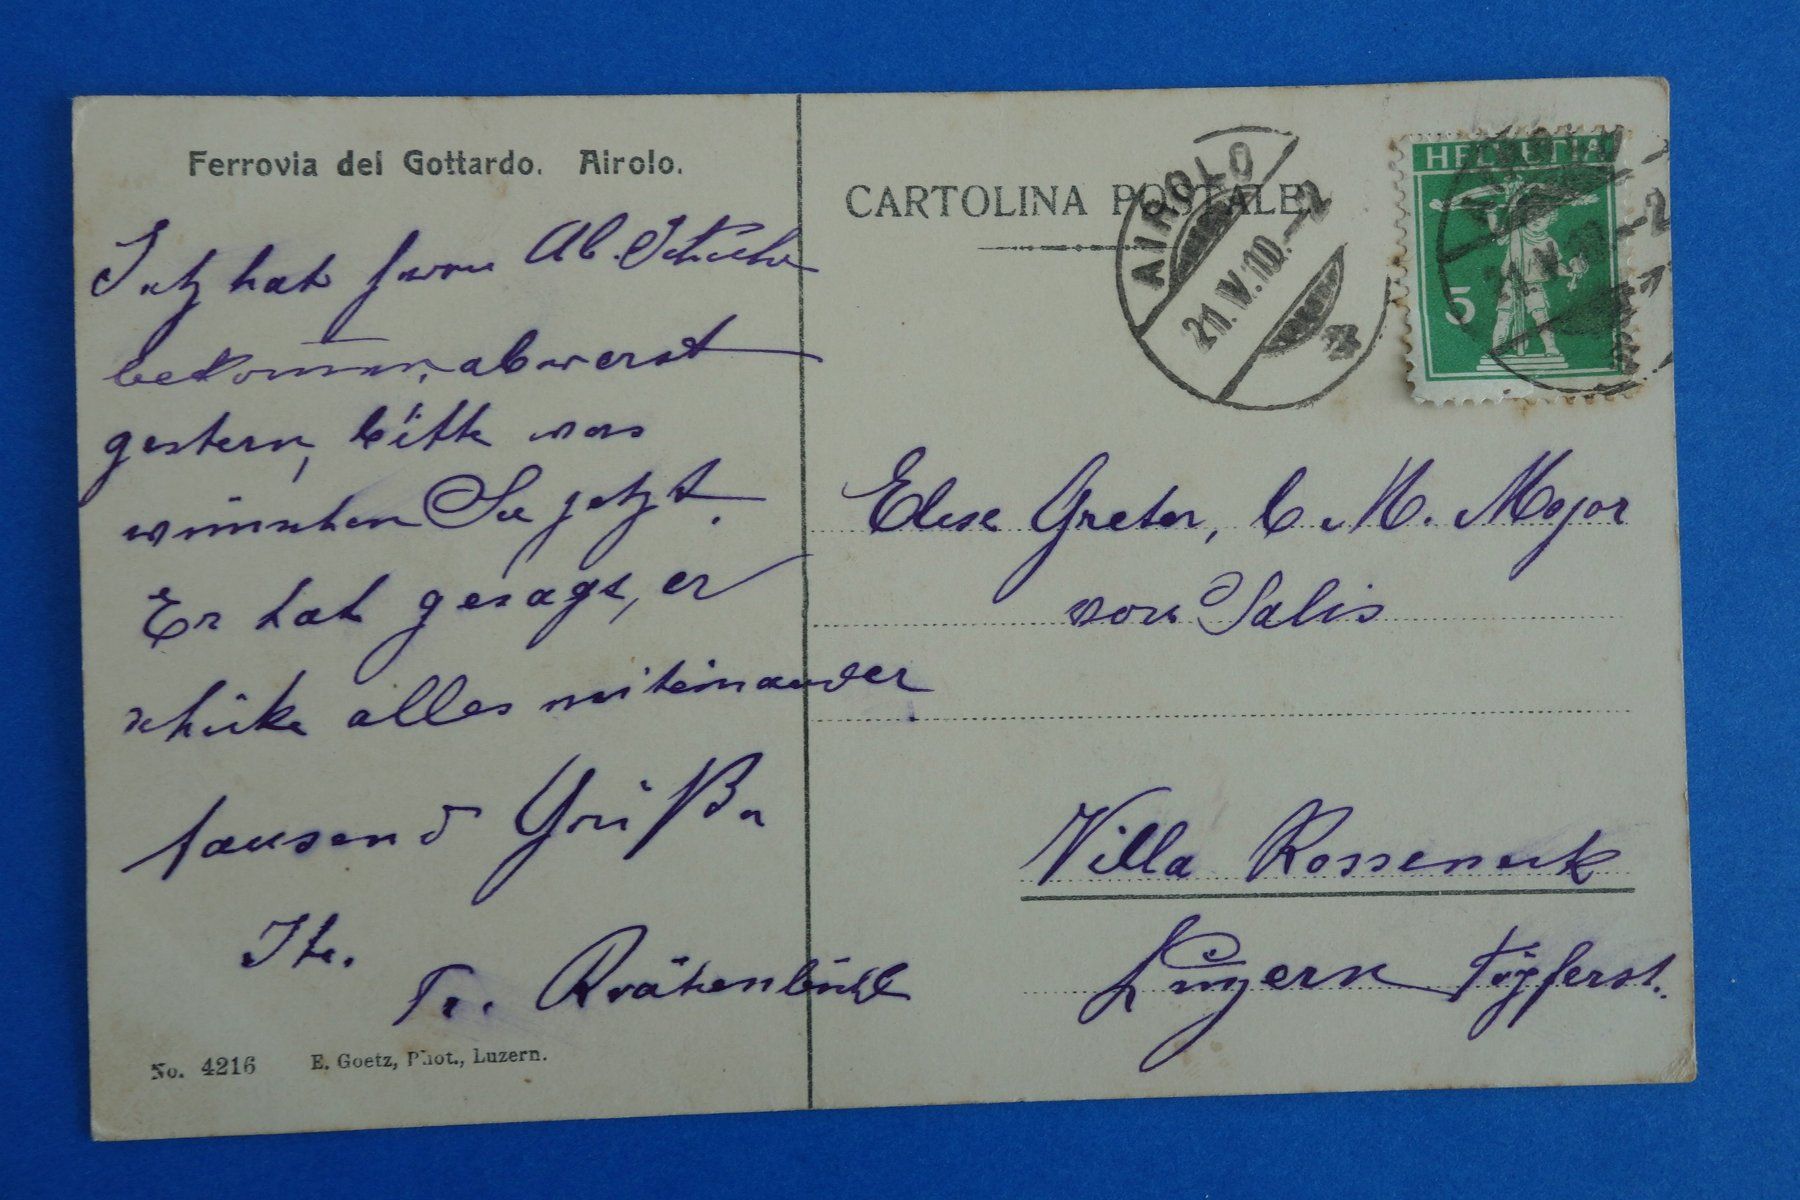 Ferrovia del Gottardo. Airolo.
hat
bekommen, aber erst
gestern, bitte was
wünschen Sie jetzt.
Er hat gesagt, er
schicke alles miteinander
tausend Grüße
Ihr.
Fr.
No. 4216 E. Goetz, Phot., Luzern.
CARTOLINA POSTALE.
AIROLO
21.IV.10.-2
HELVETIA
5
Elise Greter, b. M. Major
von Salis
Villa
Luzern Töpferst.